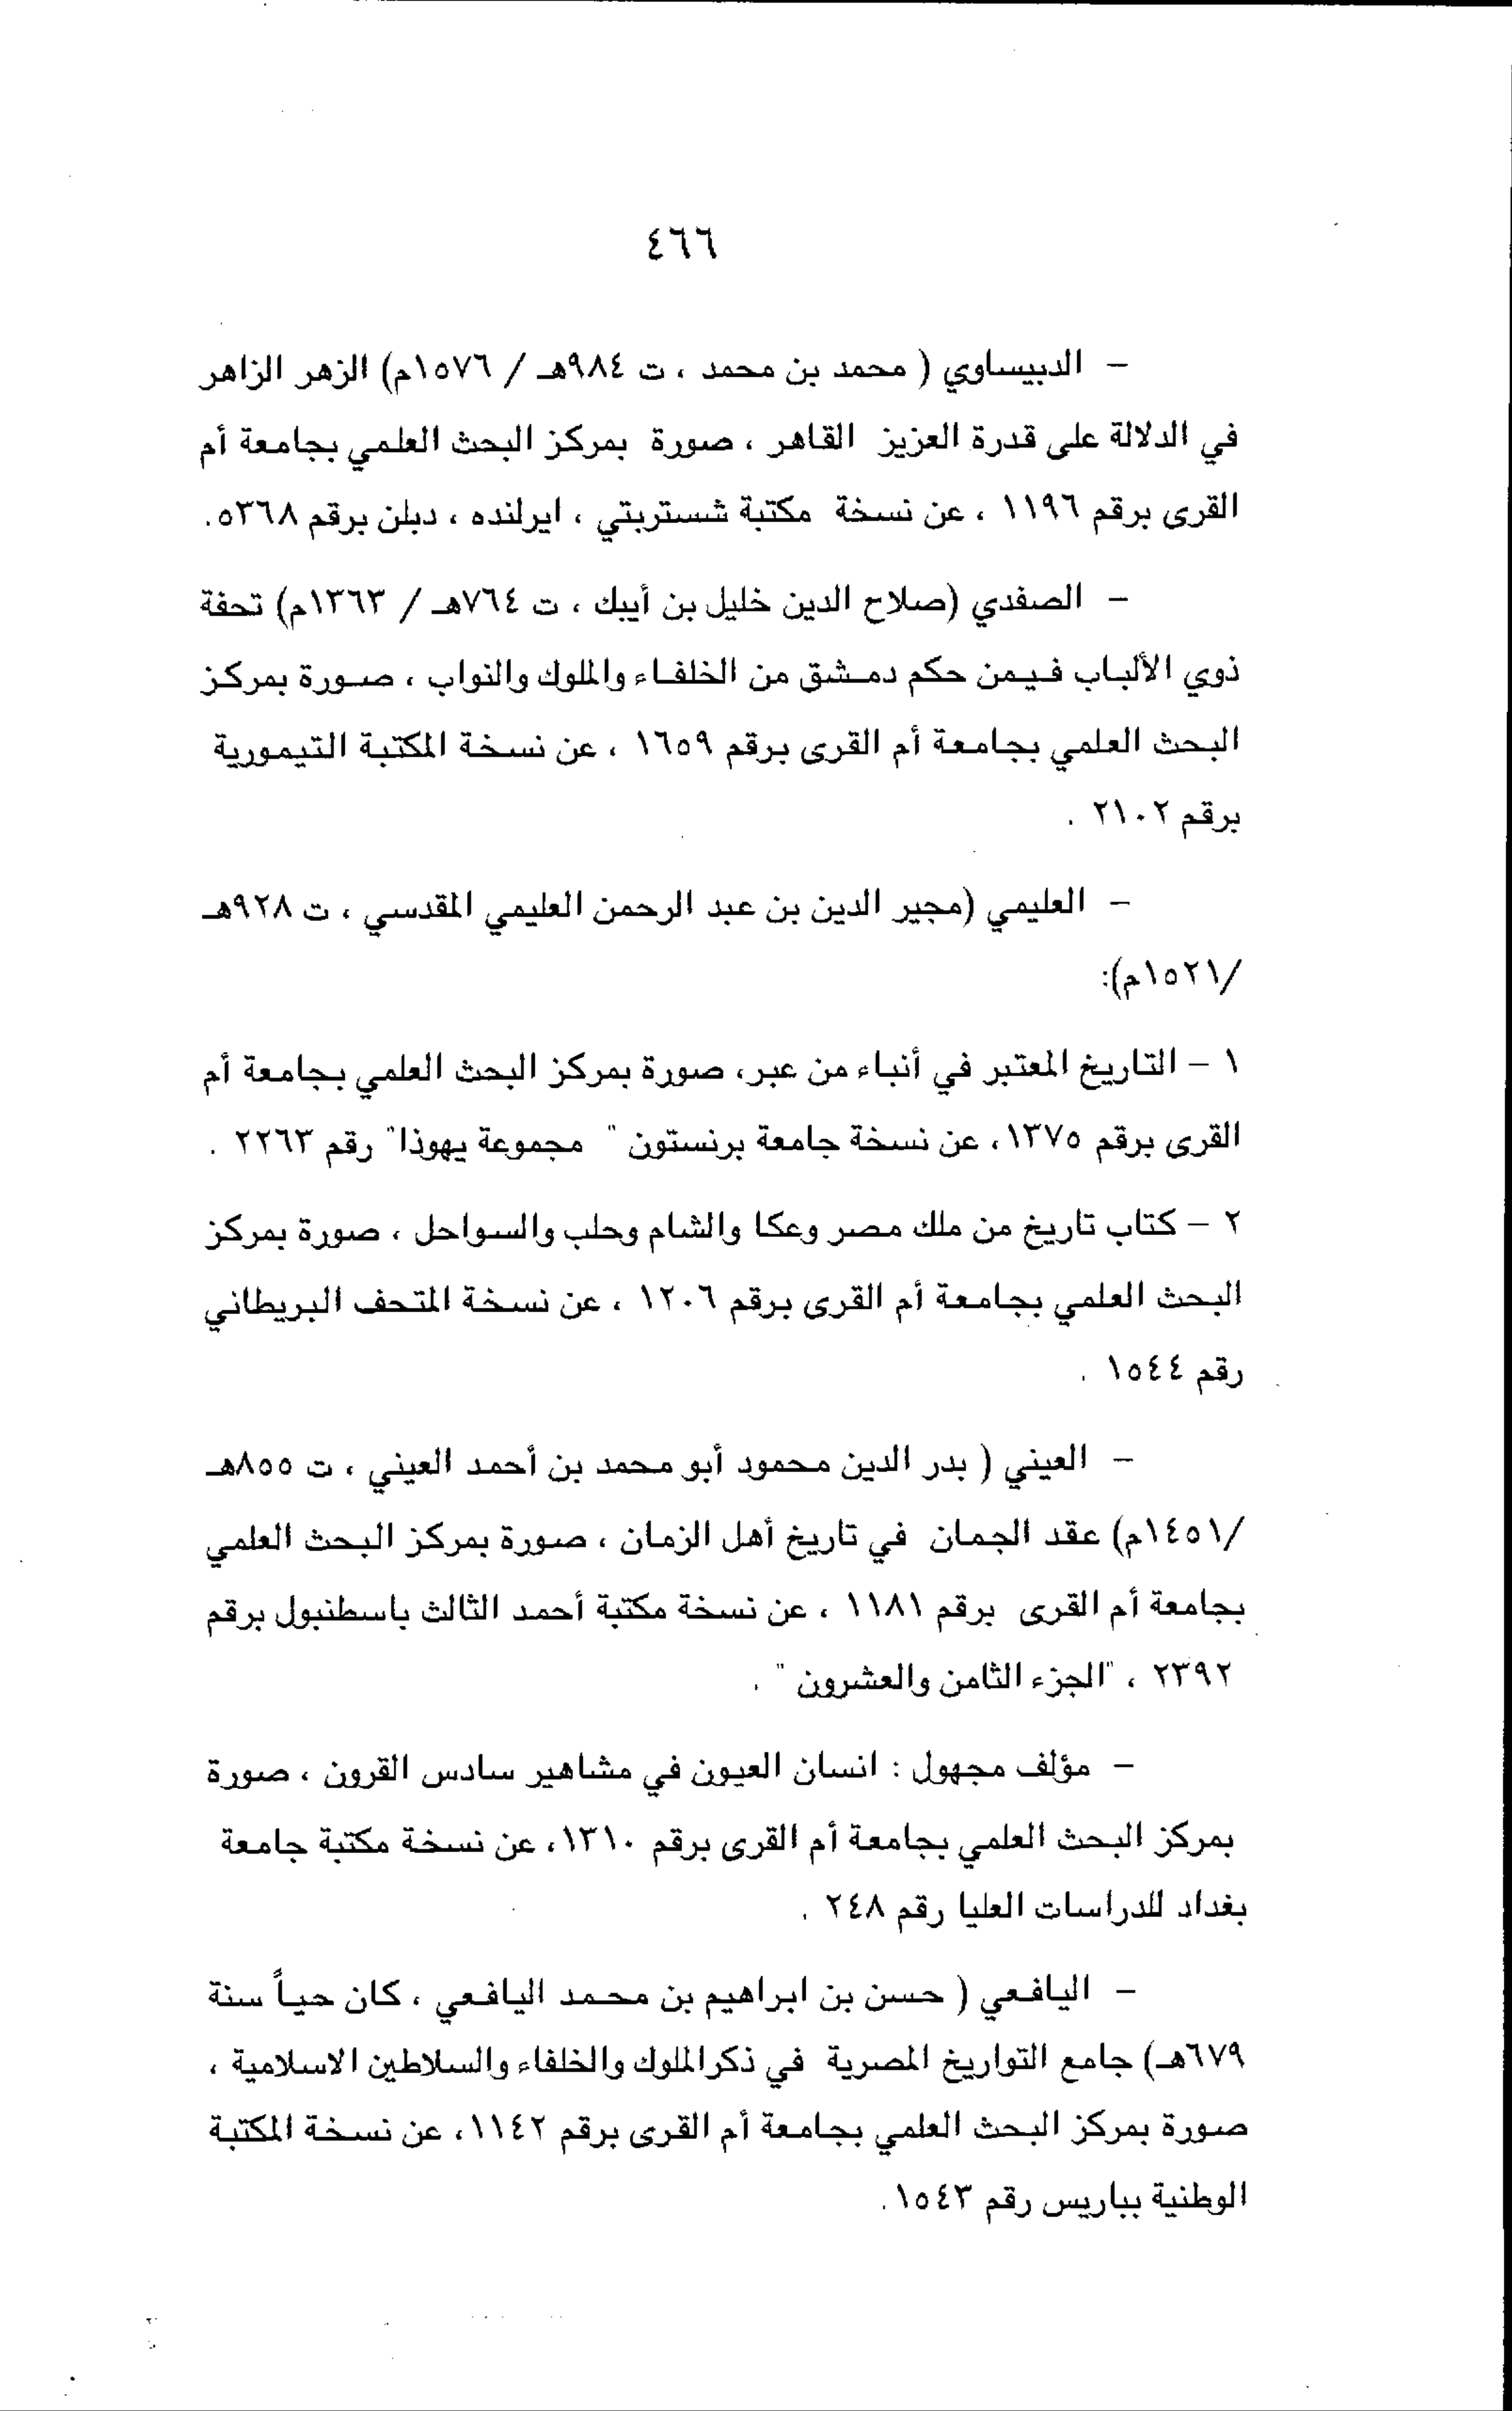 ٤٦٦
– الدبيساوي ( محمد بن محمد ، ت ٩٨٤هـ / ١٥٧٦م) الزهر الزاهر
في الدلالة على قدرة العزيز القاهر ، صورة بمركز البحث العلمي بجامعة أم
القرى برقم ١١٩٦ ، عن نسخة مكتبة شستربتي ، ايرلنده ، دبلن برقم ٥٣٦٨.
– الصفدي (صلاح الدين خليل بن أيبك ، ت ٧٦٤هـ / ١٣٦٣م) تحفة
ذوي الألباب فيمن حكم دمشق من الخلفاء والملوك والنواب ، صورة بمركز
البحث العلمي بجامعة أم القرى برقم ١٦٥٩ ، عن نسخة المكتبة التيمورية
برقم ٢١٠٢ .
– العليمي (مجير الدين بن عبد الرحمن العليمي المقدسي ، ت ٩٢٨هـ
/١٥٢١م):
١ – التاريخ المعتبر في أنباء من عبر، صورة بمركز البحث العلمي بجامعة أم
القرى برقم ١٣٧٥، عن نسخة جامعة برنستون " مجموعة يهوذا" رقم ٢٢٦٣ .
٢ – كتاب تاريخ من ملك مصر وعكا والشام وحلب والسواحل ، صورة بمركز
البحث العلمي بجامعة أم القرى برقم ١٢٠٦ ، عن نسخة المتحف البريطاني
رقم ١٥٤٤ .
– العيني ( بدر الدين محمود أبو محمد بن أحمد العيني ، ت ٨٥٥هـ
/١٤٥١م) عقد الجمان في تاريخ أهل الزمان ، صورة بمركز البحث العلمي
بجامعة أم القرى برقم ١١٨١ ، عن نسخة مكتبة أحمد الثالث باسطنبول برقم
٢٣٩٢ ، "الجزء الثامن والعشرون " .
– مؤلف مجهول : انسان العيون في مشاهير سادس القرون ، صورة
بمركز البحث العلمي بجامعة أم القرى برقم ١٣١٠، عن نسخة مكتبة جامعة
بغداد للدراسات العليا رقم ٢٤٨ .
– اليافعي ( حسن بن ابراهيم بن محمد اليافعي ، كان حياً سنة
٦٧٩هـ) جامع التواريخ المصرية في ذكرالملوك والخلفاء والسلاطين الاسلامية ،
صورة بمركز البحث العلمي بجامعة أم القرى برقم ١١٤٢، عن نسخة المكتبة
الوطنية بباريس رقم ١٥٤٣.